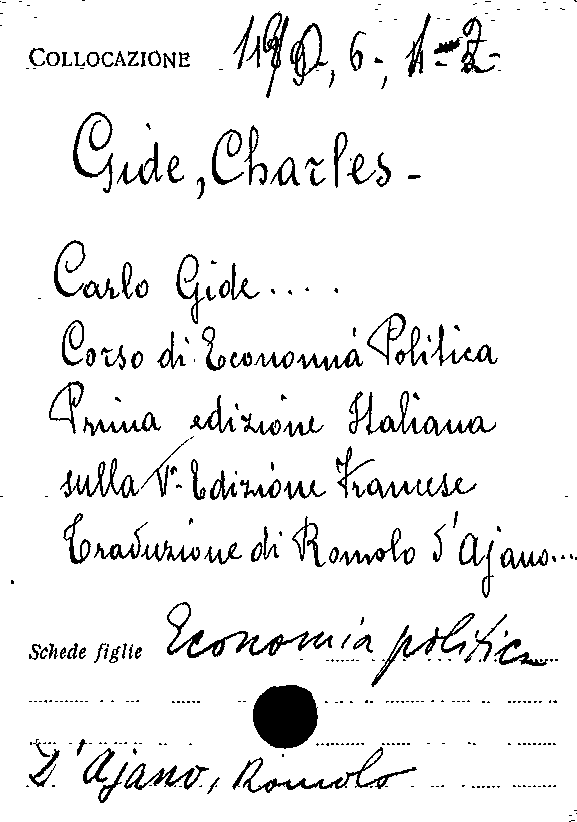 COLLOCAZIONE 6-, 1-2-
Gide, Charles -
Carlo Gide ....
Corso di Economia Politica
Prima edizione Italiana
sulla Vª Edizione Francese
Traduzione di Romolo d'Ajano...
Schede figlie Economia politica
D'Ajano, Romolo